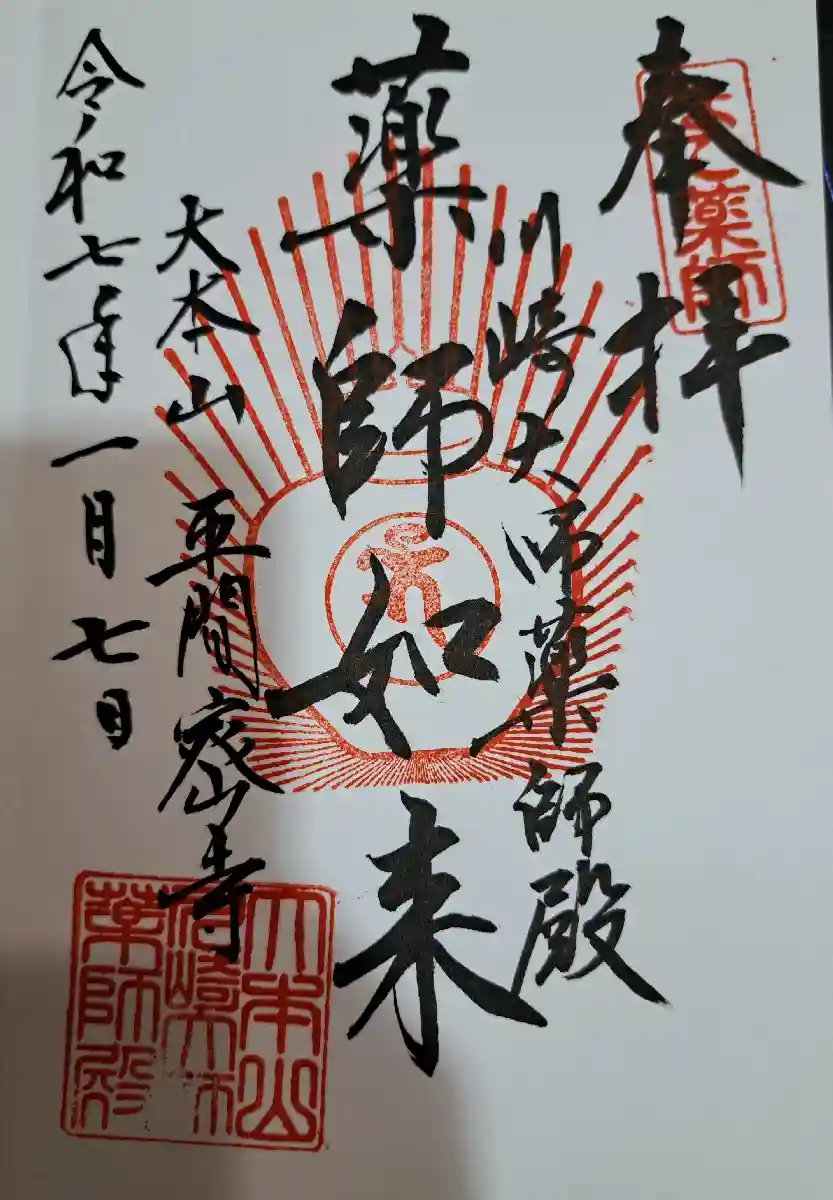 奉拝
薬師
川崎大師薬師殿
薬師如来
大本山 平間密寺
令和七年一月七日
大本山
川崎大師
薬師殿